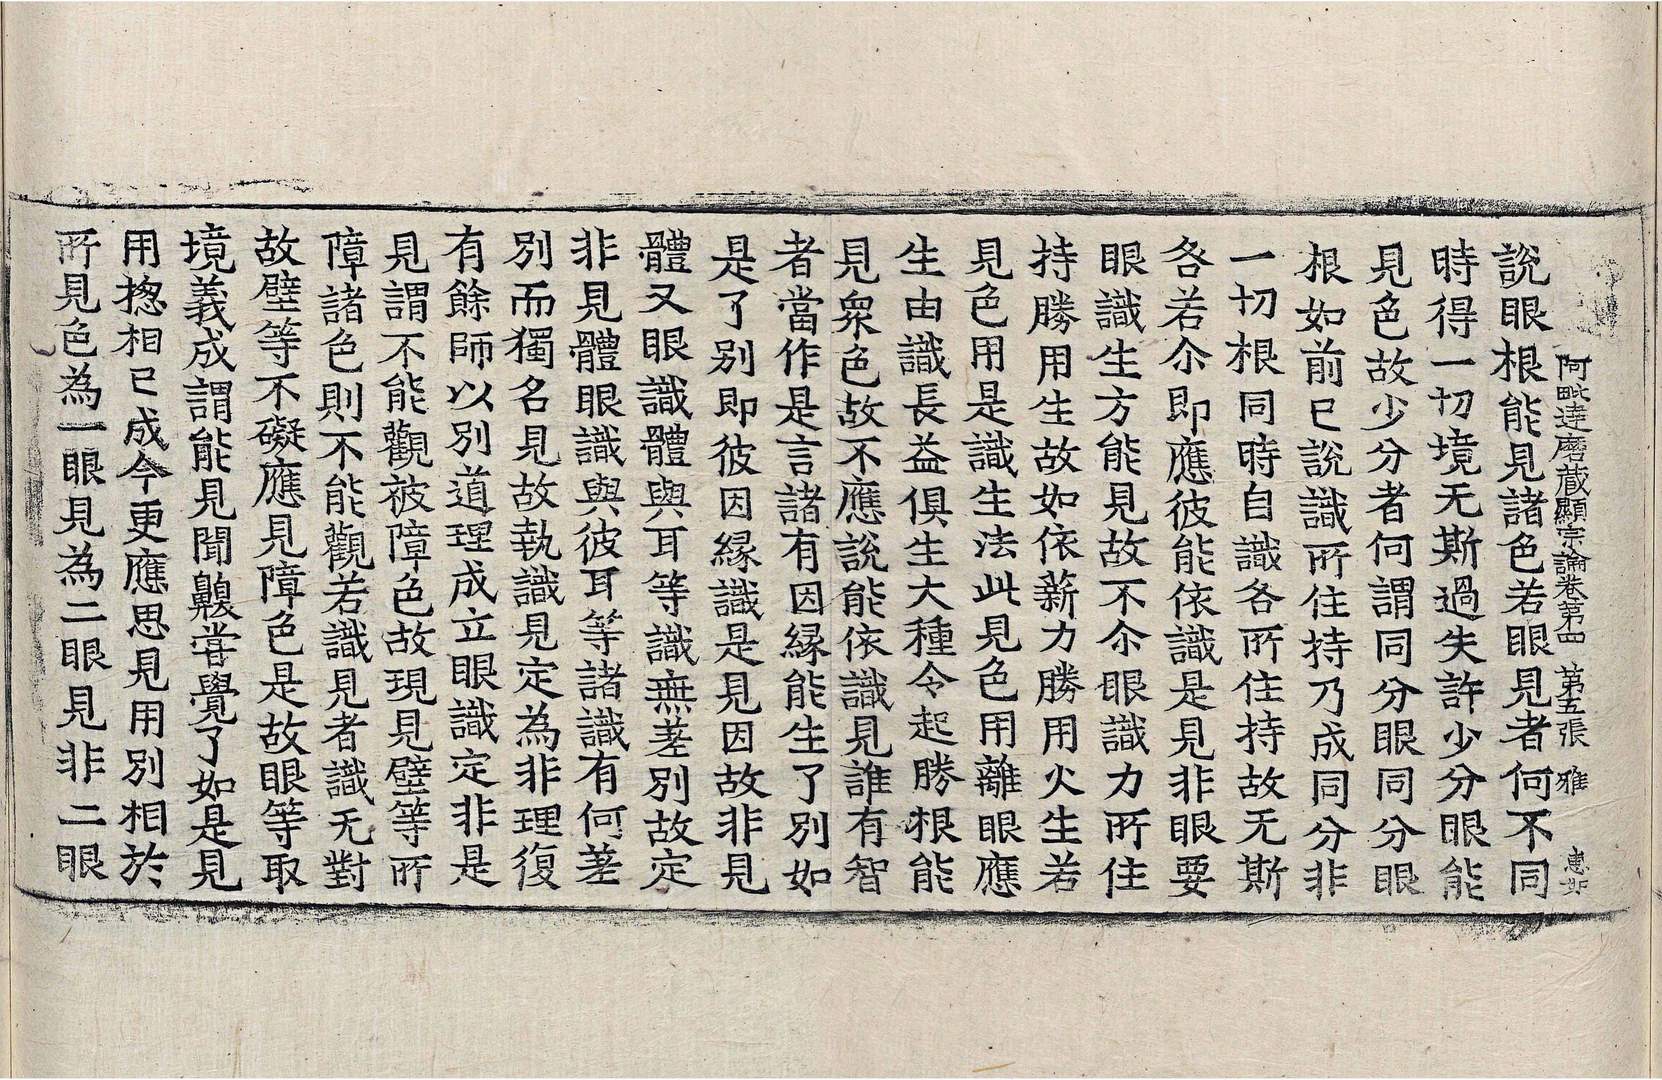 阿毗達磨藏顯宗論卷第四 第五張 雅 惠如
說眼根能見諸色若眼見者何不同
時得一切境无斯過失許少分眼能
見色故少分者何謂同分眼同分眼
根如前已說識所住持乃成同分非
一切根同時自識各所住持故无斯
各若尒即應彼能依識是見非眼要
眼識生方能見故不尒眼識力所住
持勝用生故如依薪力勝用火生若
見色用是識生法此見色用離眼應
生由識長益俱生大種令起勝根能
見衆色故不應說能依識見誰有智
者當作是言諸有因緣能生了別如
是了別即彼因緣識是見因故非見
體又眼識體與耳等識無差別故定
非見體眼識與彼耳等諸識有何差
別而獨名見故執識見定為非理復
有餘師以別道理成立眼識定非是
見謂不能觀被障色故現見壁等所
障諸色則不能觀若識見者識无對
故壁等不礙應見障色是故眼等取
境義成謂能見聞齅甞覺了如是見
用揔相已成今更應思見用別相於
所見色為一眼見為二眼見非二眼